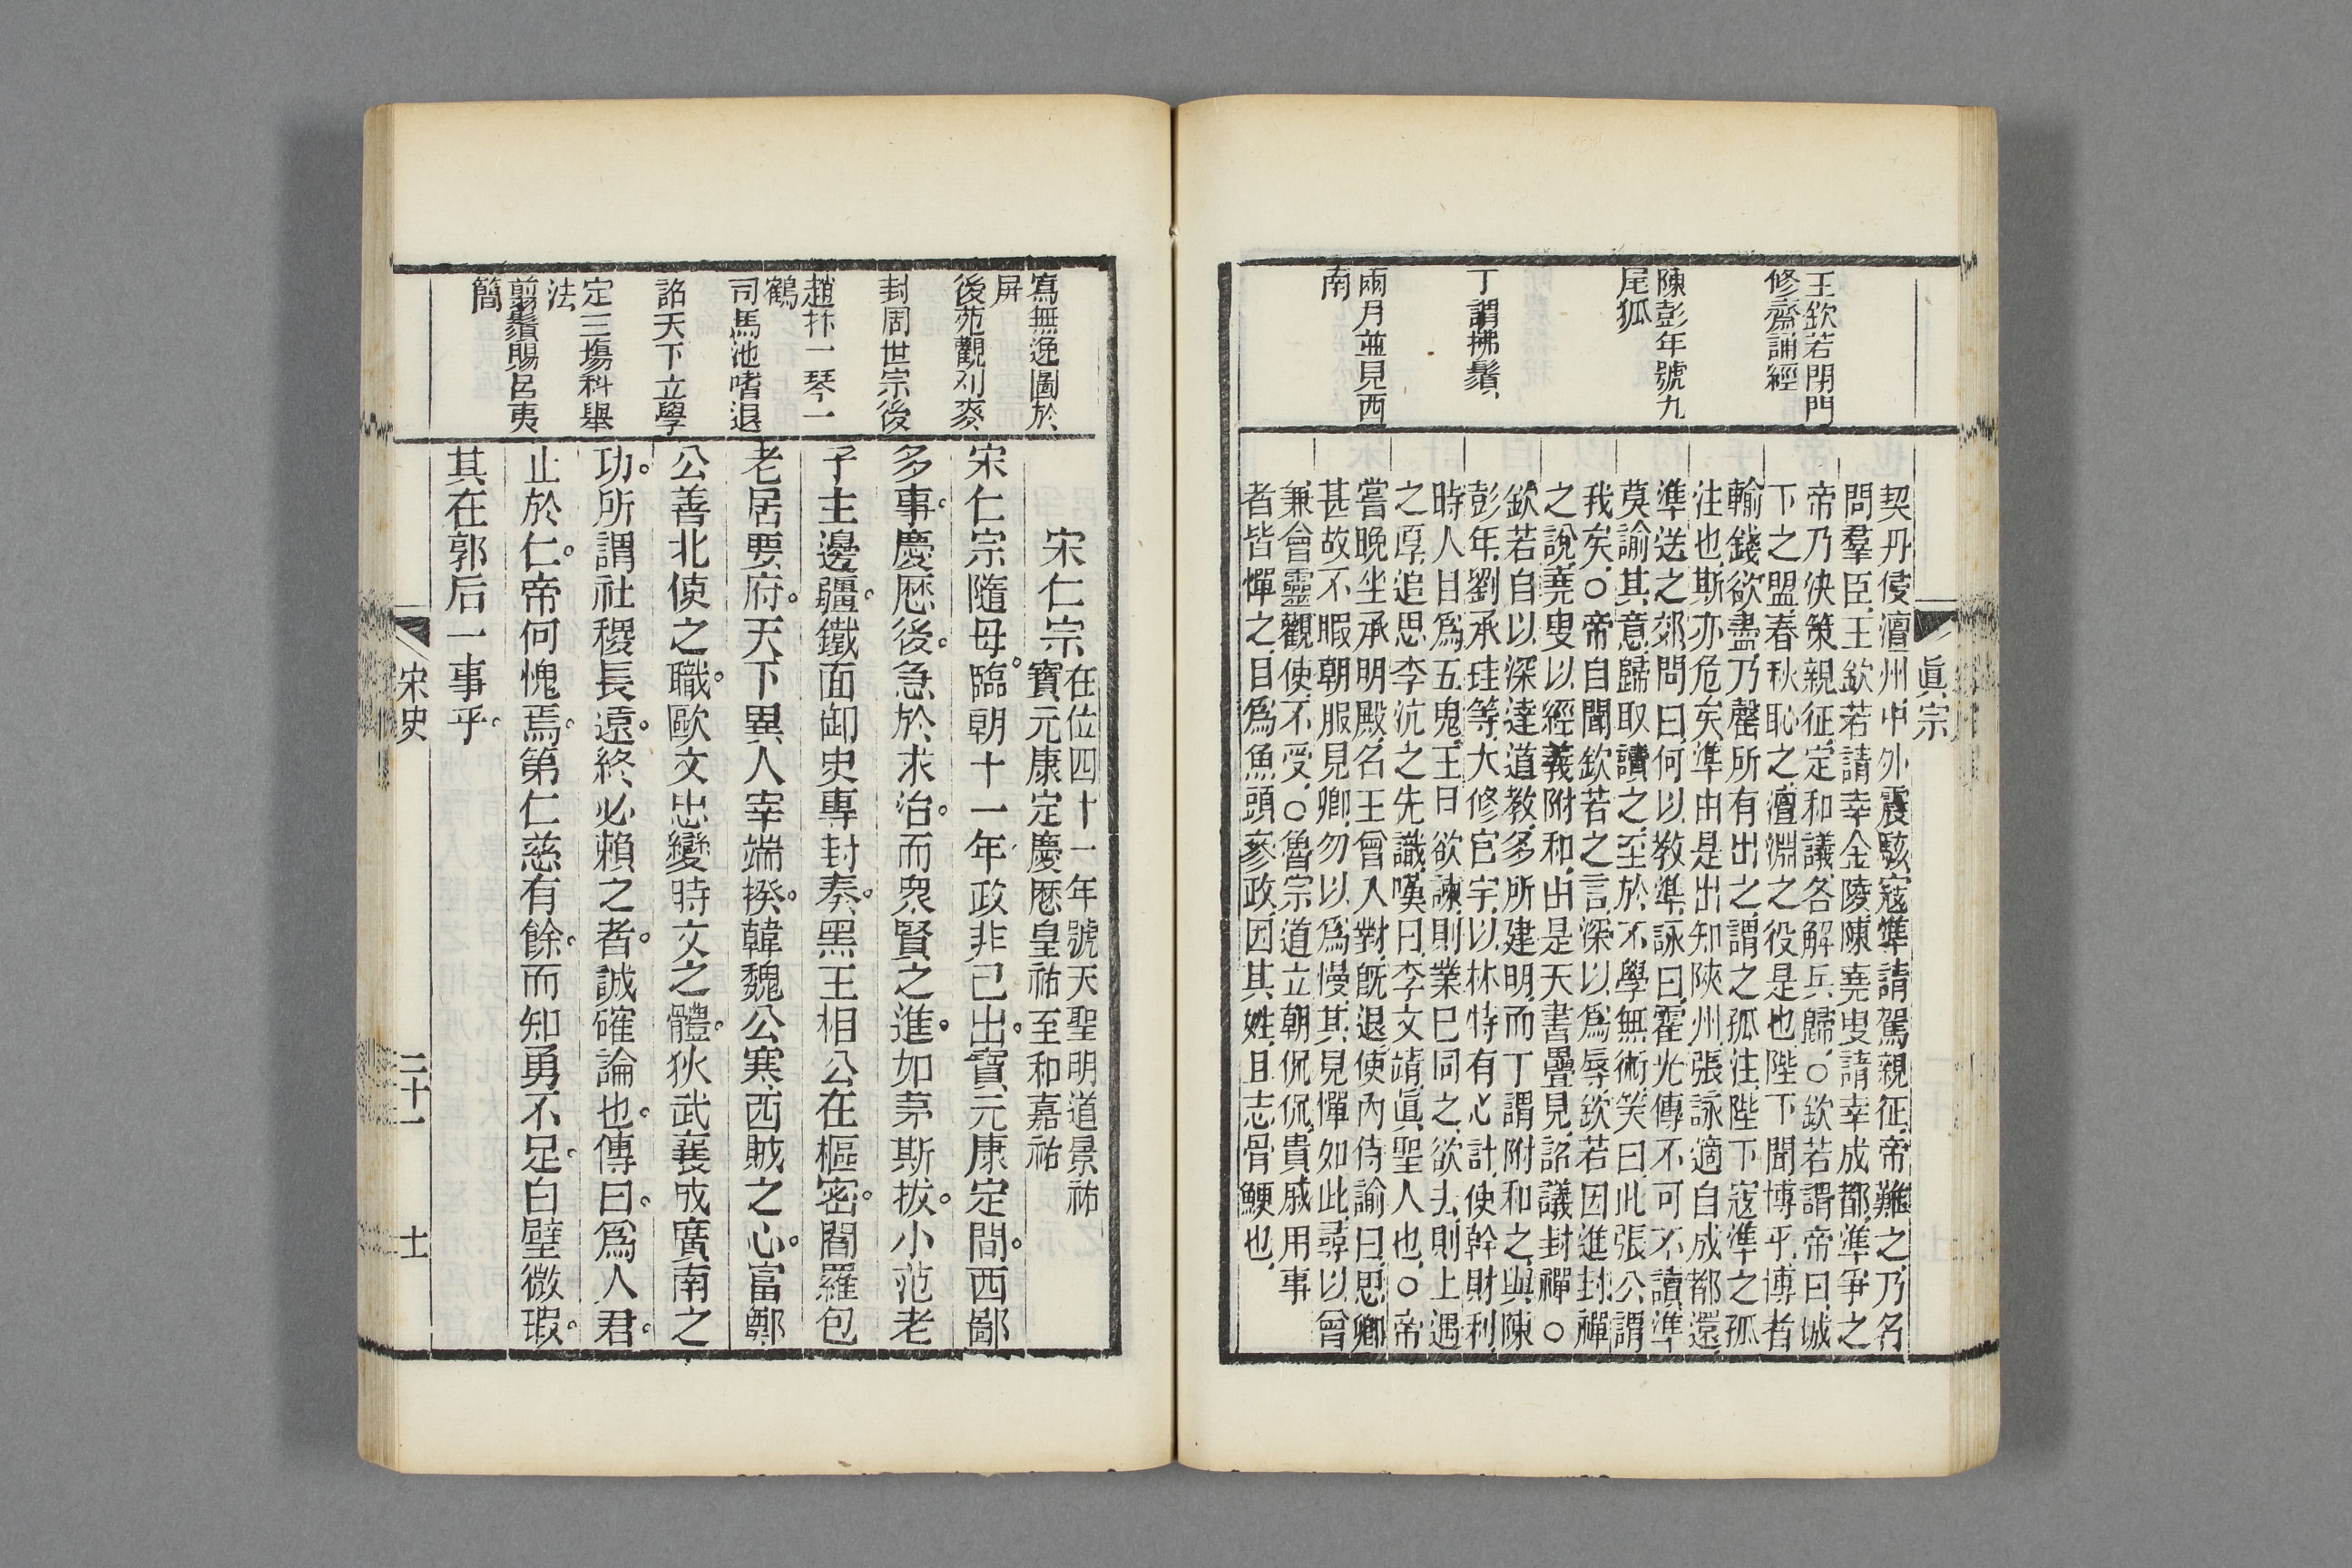 眞宗
王欽若閉門
修齋誦經
陳彭年號九
尾狐
丁謂拂鬚
兩月並見西
南
契丹侵澶州中外震駭寇準請駕親征帝難之乃名
問羣臣王欽若請幸金陵陳堯叟請幸成都準爭之
帝乃決策親征定和議各解兵歸○欽若謂帝曰城
下之盟春秋恥之澶淵之役是也陛下聞博乎博者
輸錢欲盡乃罄所有出之謂之孤注陛下寇準之孤
注也斯亦危矣準由是出知陝州張詠適自成都還
準送之郊問曰何以敎準詠曰霍光傳不可不讀準
莫諭其意歸取讀之至於不學無術笑曰此張公謂
我矣○帝自聞欽若之言深以爲辱欽若因進封禪
之說堯叟以經義附和由是天書疊見詔議封禪○
欽若自以深達道敎多所建明而丁謂附和之與陳
彭年劉承珪等大修宮宇以林特有心計使幹財利
時人目爲五鬼王旦欲諫則業已同之欲去則上遇
之厚追思李沆之先識嘆曰李文靖眞聖人也○帝
嘗晚坐承明殿名王曾入對旣退使內侍諭曰思卿
甚故不暇朝服見卿勿以爲慢其見憚如此尋以曾
兼會靈觀使不受○魯宗道立朝侃侃貴戚用事
者皆憚之目爲魚頭參政因其姓且志骨鯁也
寫無逸圖於
屏
後苑觀刈麥
封周世宗後
趙抃一琴一
鶴
司馬池嗜退
詔天下立學
定三塲科舉
法
翦鬚賜呂夷
簡
宋仁宗
在位四十一年號天聖明道景祐
寶元康定慶厯皇祐至和嘉祐
宋仁宗隨母臨朝十一年政非己出寶元康定間西鄙
多事慶厯後急於求治而眾賢之進如茅斯拔小范老
子主邊疆鐵面御史專封奏黑王相公在樞密閻羅包
老居要府天下異人宰端揆韓魏公寒西賊之心富鄭
公善北使之職歐文忠變時文之體狄武襄成廣南之
功所謂社稷長遠終必賴之者誠確論也傳曰爲人君
止於仁帝何愧焉第仁慈有餘而知勇不足白璧微瑕
其在郭后一事乎
宋史
二十一
十